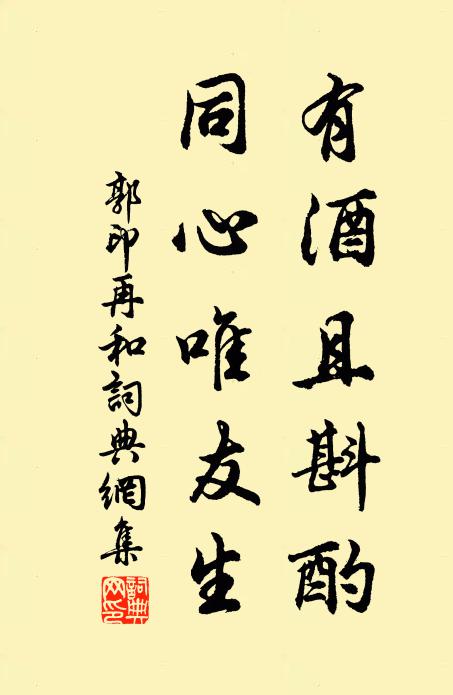 有酒且斟酌
同心唯友生
郭印再和詞典網集
詞典网印